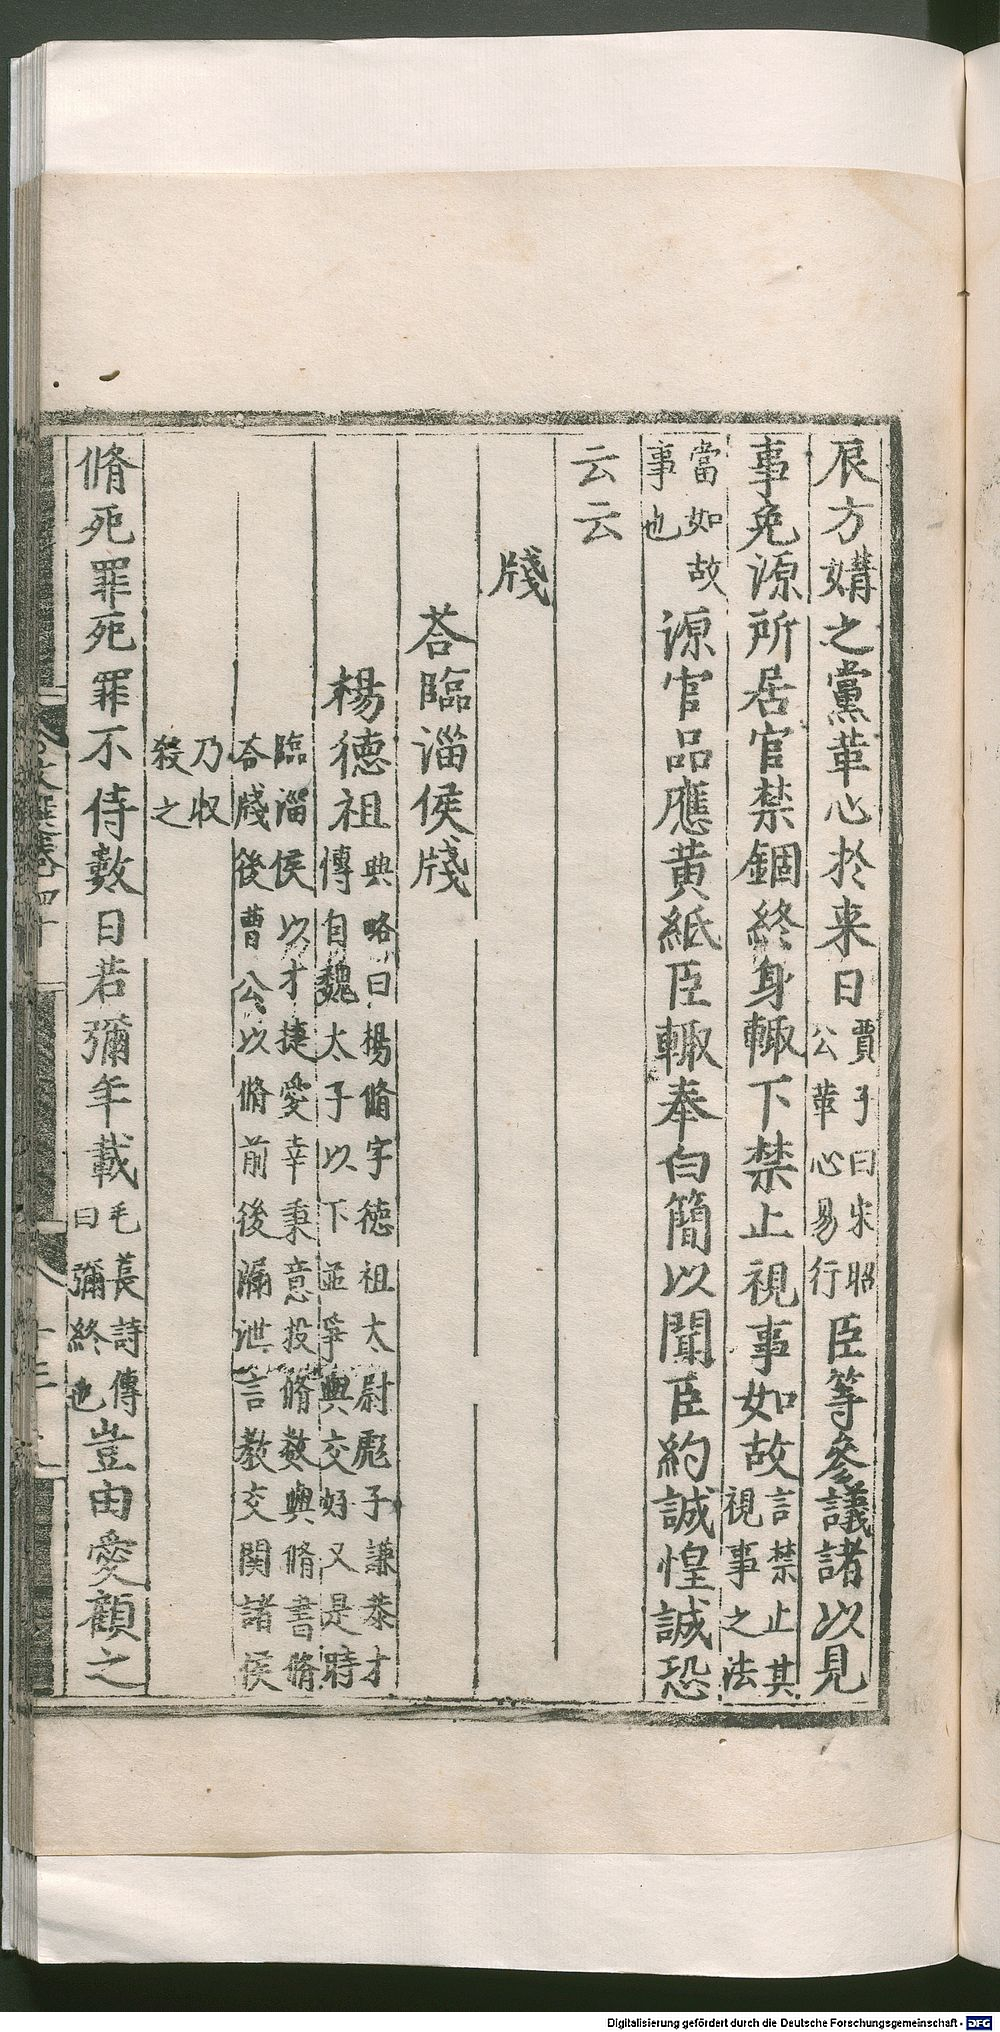 辰方媾之黨革心於来日賈子曰宋昭公革心易行臣等參議諸以見
事免源所居官禁錮終身輙下禁止視事如故言禁止其視事之法
當如故事也源官品應黄紙臣輙奉白簡以聞臣約誠惶誠恐
云云
牋
荅臨淄侯牋
楊德祖典略曰楊脩字德祖太尉彪子謙恭才傳自魏太子以下並爭與交好又是時
臨淄侯以才捷愛幸秉意投脩數與脩書脩荅牋後曹公以脩前後漏泄言教交関諸侯
乃収殺之
脩死罪死罪不侍數日若彌年載毛萇詩傳曰彌終也豈由愛顧之
文選卷四十
Digitalisierung gefördert durch die Deutsche Forschungsgemeinschaft - DFG